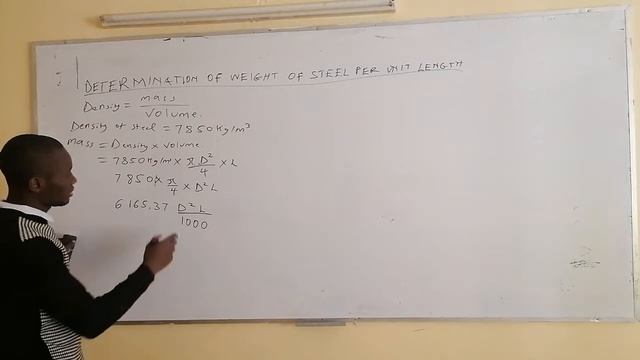 DETERMINATION OF WEIGHT OF STEEL PER UNIT LENGTH
Density = mass / Volume.
Density of steel = 7850kg/m³
mass = Density x volume
= 7850kg/m³ x πD²/4 x L
7850x π/4 x D²L
6165.37 D²L/1000